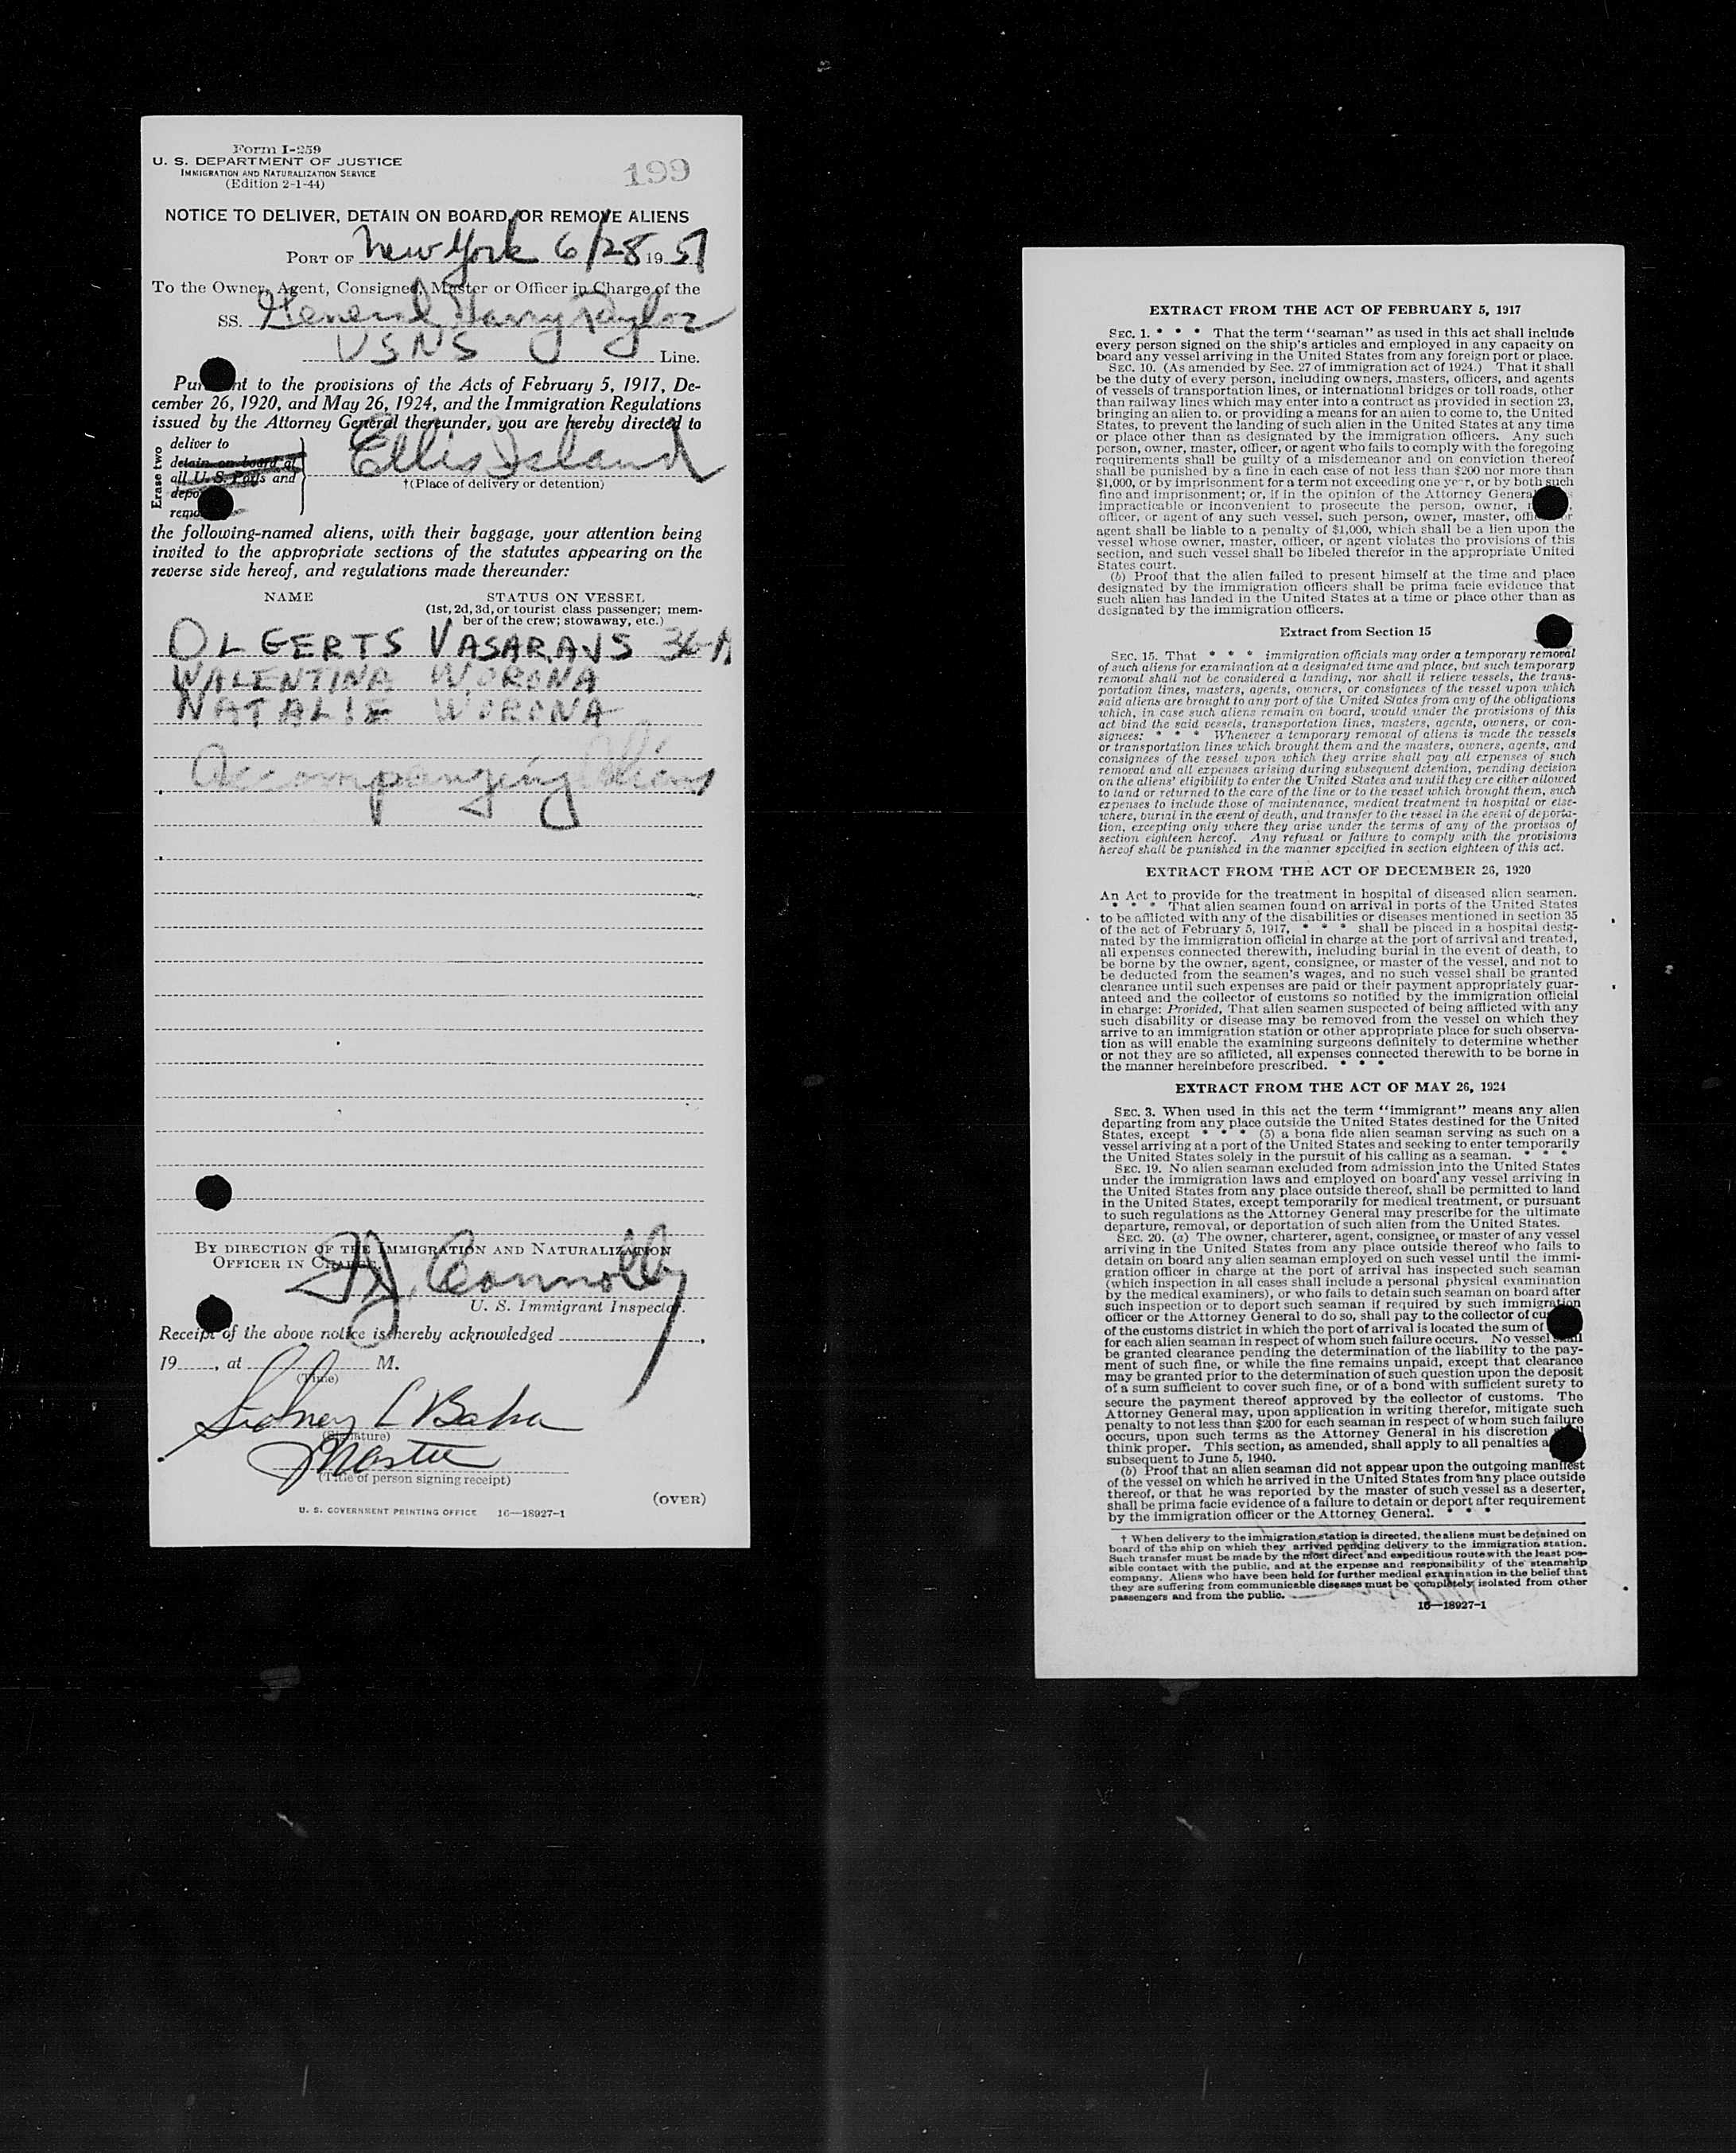 Form I-259
U. S. DEPARTMENT OF JUSTICE
IMMIGRATION AND NATURALIZATION SERVICE
(Edition 2-1-44)
199
NOTICE TO DELIVER, DETAIN ON BOARD, OR REMOVE ALIENS
PORT OF New York 6/28 1951
To the Owner, Agent, Consignee, Master or Officer in Charge of the
SS. General Harry Taylor
USNS Line.
Pursuant to the provisions of the Acts of February 5, 1917, De-
cember 26, 1920, and May 26, 1924, and the Immigration Regulations
issued by the Attorney General thereunder, you are hereby directed to
Erase two
deliver to
detain on board at
all U. S. Ports and
depo
remo
Ellis Island
†(Place of delivery or detention)
the following-named aliens, with their baggage, your attention being
invited to the appropriate sections of the statutes appearing on the
reverse side hereof, and regulations made thereunder:
NAME STATUS ON VESSEL
(1st, 2d, 3d, or tourist class passenger; mem-
ber of the crew; stowaway, etc.)
OLGERTS VASARAJS
WALENTINA WORONA
NATALIE WORONA
Accompanying Aliens
BY DIRECTION OF THE IMMIGRATION AND NATURALIZATION
OFFICER IN CHARGE,
Connolly
U. S. Immigrant Inspector.
Receipt of the above notice is hereby acknowledged
19 , at M.
(Time)
Sidney L
(Signature)
Master
(Title of person signing receipt)
(OVER)
U. S. GOVERNMENT PRINTING OFFICE 16—18927-1
EXTRACT FROM THE ACT OF FEBRUARY 5, 1917
SEC. 1. * * * That the term "seaman" as used in this act shall include
every person signed on the ship's articles and employed in any capacity on
board any vessel arriving in the United States from any foreign port or place.
SEC. 10. (As amended by Sec. 27 of immigration act of 1924.) That it shall
be the duty of every person, including owners, masters, officers, and agents
of vessels of transportation lines, or international bridges or toll roads, other
than railway lines which may enter into a contract as provided in section 23,
bringing an alien to, or providing a means for an alien to come to, the United
States, to prevent the landing of such alien in the United States at any time
or place other than as designated by the immigration officers. Any such
person, owner, master, officer, or agent who fails to comply with the foregoing
requirements shall be guilty of a misdemeanor and on conviction thereof
shall be punished by a fine in each case of not less than $200 nor more than
$1,000, or by imprisonment for a term not exceeding one year, or by both such
fine and imprisonment; or, if in the opinion of the Attorney General
impracticable or inconvenient to prosecute the person, owner,
officer, or agent of any such vessel, such person, owner, master, officer
agent shall be liable to a penalty of $1,000, which shall be a lien upon the
vessel whose owner, master, officer, or agent violates the provisions of this
section, and such vessel shall be libeled therefor in the appropriate United
States court.
(b) Proof that the alien failed to present himself at the time and place
designated by the immigration officers shall be prima facie evidence that
such alien has landed in the United States at a time or place other than as
designated by the immigration officers.
Extract from Section 15
SEC. 15. That * * * immigration officials may order a temporary removal
of such aliens for examination at a designated time and place, but such temporary
removal shall not be considered a landing, nor shall it relieve vessels, the trans-
portation lines, masters, agents, owners, or consignees of the vessel upon which
said aliens are brought to any port of the United States from any of the obligations
which, in case such aliens remain on board, would under the provisions of this
act bind the said vessels, transportation lines, masters, agents, owners, or con-
signees: * * * Whenever a temporary removal of aliens is made the vessels
or transportation lines which brought them and the masters, owners, agents, and
consignees of the vessel upon which they arrive shall pay all expenses of such
removal and all expenses arising during subsequent detention, pending decision
on the aliens' eligibility to enter the United States and until they are either allowed
to land or returned to the care of the line or to the vessel which brought them, such
expenses to include those of maintenance, medical treatment in hospital or else-
where, burial in the event of death, and transfer to the vessel in the event of deporta-
tion, excepting only where they arise under the terms of any of the provisos of
section eighteen hereof. Any refusal or failure to comply with the provisions
hereof shall be punished in the manner specified in section eighteen of this act.
EXTRACT FROM THE ACT OF DECEMBER 26, 1920
An Act to provide for the treatment in hospital of diseased alien seamen.
* * * That alien seamen found on arrival in ports of the United States
to be afflicted with any of the disabilities or diseases mentioned in section 35
of the act of February 5, 1917, * * * shall be placed in a hospital desig-
nated by the immigration official in charge at the port of arrival and treated,
all expenses connected therewith, including burial in the event of death, to
be borne by the owner, agent, consignee, or master of the vessel, and not to
be deducted from the seamen's wages, and no such vessel shall be granted
clearance until such expenses are paid or their payment appropriately guar-
anteed and the collector of customs so notified by the immigration official
in charge: Provided, That alien seamen suspected of being afflicted with any
such disability or disease may be removed from the vessel on which they
arrive to an immigration station or other appropriate place for such observa-
tion as will enable the examining surgeons definitely to determine whether
or not they are so afflicted, all expenses connected therewith to be borne in
the manner hereinbefore prescribed. * * *
EXTRACT FROM THE ACT OF MAY 26, 1924
SEC. 3. When used in this act the term "immigrant" means any alien
departing from any place outside the United States destined for the United
States, except * * * (5) a bona fide alien seaman serving as such on a
vessel arriving at a port of the United States and seeking to enter temporarily
the United States solely in the pursuit of his calling as a seaman. * * *
SEC. 19. No alien seaman excluded from admission into the United States
under the immigration laws and employed on board any vessel arriving in
the United States from any place outside thereof, shall be permitted to land
in the United States, except temporarily for medical treatment, or pursuant
to such regulations as the Attorney General may prescribe for the ultimate
departure, removal, or deportation of such alien from the United States.
SEC. 20. (a) The owner, charterer, agent, consignee, or master of any vessel
arriving in the United States from any place outside thereof who fails to
detain on board any alien seaman employed on such vessel until the immi-
gration officer in charge at the port of arrival has inspected such seaman
(which inspection in all cases shall include a personal physical examination
by the medical examiners), or who fails to detain such seaman on board after
such inspection or to deport such seaman if required by such immigration
officer or the Attorney General to do so, shall pay to the collector of cu
of the customs district in which the port of arrival is located the sum of
for each alien seaman in respect of whom such failure occurs. No vessel shall
be granted clearance pending the determination of the liability to the pay-
ment of such fine, or while the fine remains unpaid, except that clearance
may be granted prior to the determination of such question upon the deposit
of a sum sufficient to cover such fine, or of a bond with sufficient surety to
secure the payment thereof approved by the collector of customs. The
Attorney General may, upon application in writing therefor, mitigate such
penalty to not less than $200 for each seaman in respect of whom such failure
occurs, upon such terms as the Attorney General in his discretion
think proper. This section, as amended, shall apply to all penalties a
subsequent to June 5, 1940.
(b) Proof that an alien seaman did not appear upon the outgoing manifest
of the vessel on which he arrived in the United States from any place outside
thereof, or that he was reported by the master of such vessel as a deserter,
shall be prima facie evidence of a failure to detain or deport after requirement
by the immigration officer or the Attorney General. * * *
† When delivery to the immigration station is directed, the aliens must be detained on
board of the ship on which they arrived pending delivery to the immigration station.
Such transfer must be made by the most direct and expeditious route with the least pos-
sible contact with the public, and at the expense and responsibility of the steamship
company. Aliens who have been held for further medical examination in the belief that
they are suffering from communicable diseases must be completely isolated from other
passengers and from the public.
16—18927-1